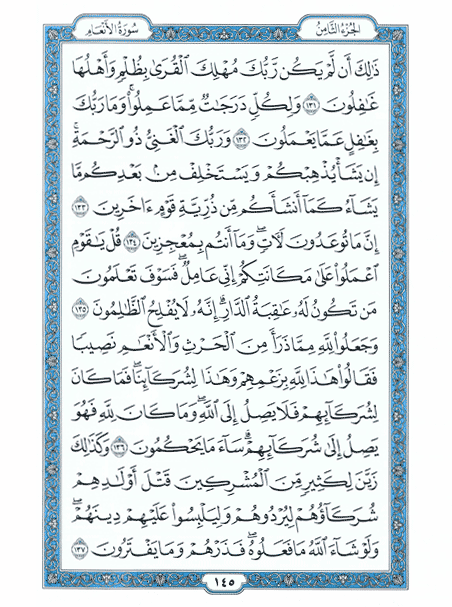 الجزء الثامن
سورة الأنعام
ذَٰلِكَ أَن لَّمْ يَكُن رَّبُّكَ مُهْلِكَ ٱلْقُرَىٰ بِظُلْمٍ وَأَهْلُهَا
غَـٰفِلُونَ ١٣١ وَلِكُلٍّ دَرَجَـٰتٌ مِّمَّا عَمِلُوا۟ ۚ وَمَا رَبُّكَ
بِغَـٰفِلٍ عَمَّا يَعْمَلُونَ ١٣٢ وَرَبُّكَ ٱلْغَنِىُّ ذُو ٱلرَّحْمَةِ ۚ
إِن يَشَأْ يُذْهِبْكُمْ وَيَسْتَخْلِفْ مِنۢ بَعْدِكُم مَّا
يَشَآءُ كَمَآ أَنشَأَكُم مِّن ذُرِّيَّةِ قَوْمٍ ءَاخَرِينَ ١٣٣
إِنَّ مَا تُوعَدُونَ لَـَٔاتٍ ۖ وَمَآ أَنتُم بِمُعْجِزِينَ ١٣٤ قُلْ يَـٰقَوْمِ
ٱعْمَلُوا۟ عَلَىٰ مَكَانَتِكُمْ إِنِّى عَامِلٌ ۖ فَسَوْفَ تَعْلَمُونَ
مَن تَكُونُ لَهُۥ عَـٰقِبَةُ ٱلدَّارِ ۗ إِنَّهُۥ لَا يُفْلِحُ ٱلظَّـٰلِمُونَ ١٣٥
وَجَعَلُوا۟ لِلَّهِ مِمَّا ذَرَأَ مِنَ ٱلْحَرْثِ وَٱلْأَنْعَـٰمِ نَصِيبًا
فَقَالُوا۟ هَـٰذَا لِلَّهِ بِزَعْمِهِمْ وَهَـٰذَا لِشُرَكَآئِنَا ۖ فَمَا كَانَ
لِشُرَكَآئِهِمْ فَلَا يَصِلُ إِلَى ٱللَّهِ ۖ وَمَا كَانَ لِلَّهِ فَهُوَ
يَصِلُ إِلَىٰ شُرَكَآئِهِمْ ۗ سَآءَ مَا يَحْكُمُونَ ١٣٦ وَكَذَٰلِكَ
زَيَّنَ لِكَثِيرٍ مِّنَ ٱلْمُشْرِكِينَ قَتْلَ أَوْلَـٰدِهِمْ
شُرَكَآؤُهُمْ لِيُرْدُوهُمْ وَلِيَلْبِسُوا۟ عَلَيْهِمْ دِينَهُمْ ۖ
وَلَوْ شَآءَ ٱللَّهُ مَا فَعَلُوهُ ۖ فَذَرْهُمْ وَمَا يَفْتَرُونَ ١٣٧
١٤٥